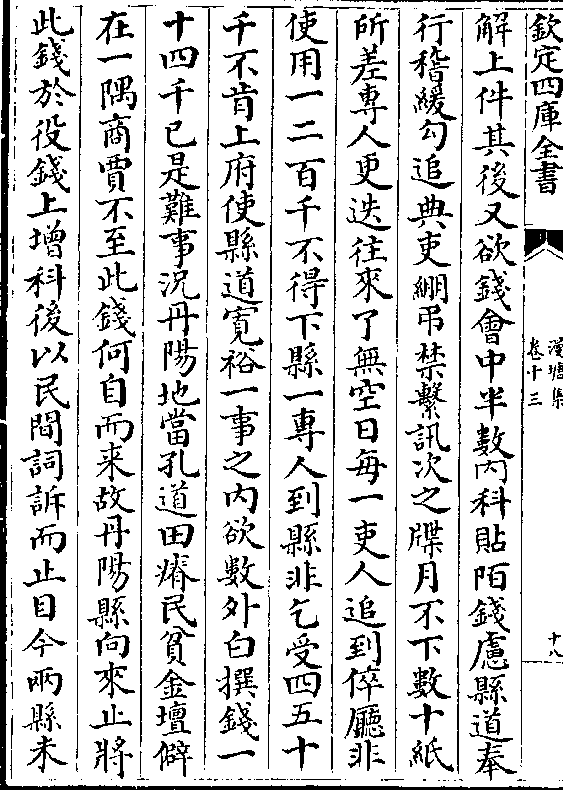 欽定四庫全書
漫塘集
卷十三
十八
解上件其後又欲錢會中半數內科貼陌錢慮縣道奉
行稽緩勾追典吏綳吊禁繫訊次之牒月不下數十紙
所差專人更迭往來了無空日每一吏人追到倅廳非
使用一二百千不得下縣一專人到縣非乞受四五十
千不肯上府使縣道寛裕一事之内欲數外白撰錢一
十四千已是難事況丹陽地當孔道田瘠民貧金壇僻
在一隅商賈不至此錢何自而来故丹陽縣向來止將
此錢於役錢上增科後以民間詞訴而止目今兩縣未